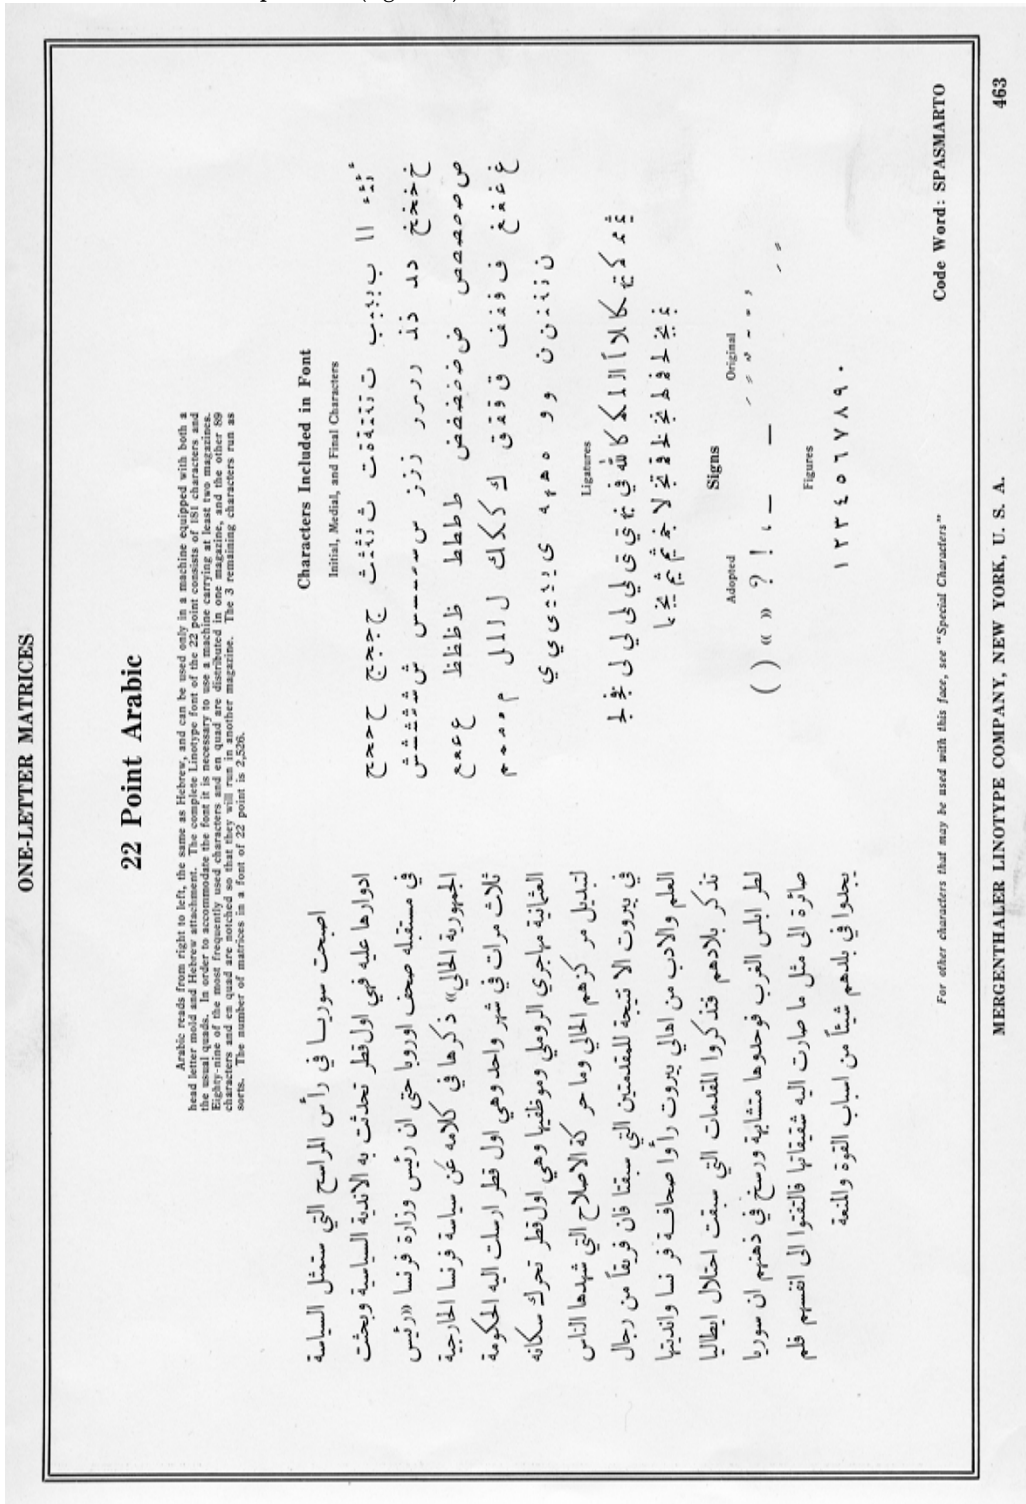 ONE-LETTER MATRICES
22 Point Arabic
Arabic reads from right to left, the same as Hebrew, and can be used only in a machine equipped with both a
head letter mold and Hebrew attachment. The complete Linotype font of the 22 point consists of 181 characters and
the usual quads. In order to accommodate the font it is necessary to use a machine carrying at least two magazines.
Eighty-nine of the most frequently used characters and en quad are distributed in one magazine, and the other 89
characters and en quad are notched so that they will run in another magazine. The 3 remaining characters run as
sorts. The number of matrices in a font of 22 point is 2,526.
اصبحت سوريا في رأس المراسح التي ستمثل السياسة
ادوارها عليه فهي اول قطر تحدثت به الاندية السياسية وبحثت
في مستقبله صحف اوروبا حتى ان رئيس وزارة فرنسا «رئيس
الجمهورية الحالي» ذكرها في كلامه عن سياسة فرنسا الخارجية
ثلاث مرات في شهر واحد وهي اول قطر ارسلت اليه الحكومة
العثمانية مهاجري الروملي وموظفيها وهي اول قطر تحرك سكانه
لتبديل مركزهم الحالي وما حركة الاصلاح التي شهدها الناس
في بيروت الا نتيجة للمقدمتين التي سبقتا فان فريقاً من رجال
العلم والادب من اهالي بيروت رأوا صحافة فرنسا وانديتها
تذكر بلادهم فتذكروا المقدمات التي سبقت احتلال ايطاليا
لطرابلس الغرب فوجدوها متشابهة ورسخ في ذهنهم ان سوريا
صائرة الى مثل ما صارت اليه شقيقاتها فالتفتوا الى انفسهم فلم
يجدوا في بلدهم شيئاً من اسباب القوة والمنعة
Characters Included in Font
Initial, Medial, and Final Characters
Ligatures
Signs
Adopted Original
( ) « » ? !
Figures
١٢٣٤٥٦٧٨٩٠
For other characters that may be used with this face, see "Special Characters"
Code Word: SPASMARTO
MERGENTHALER LINOTYPE COMPANY, NEW YORK, U. S. A.
463